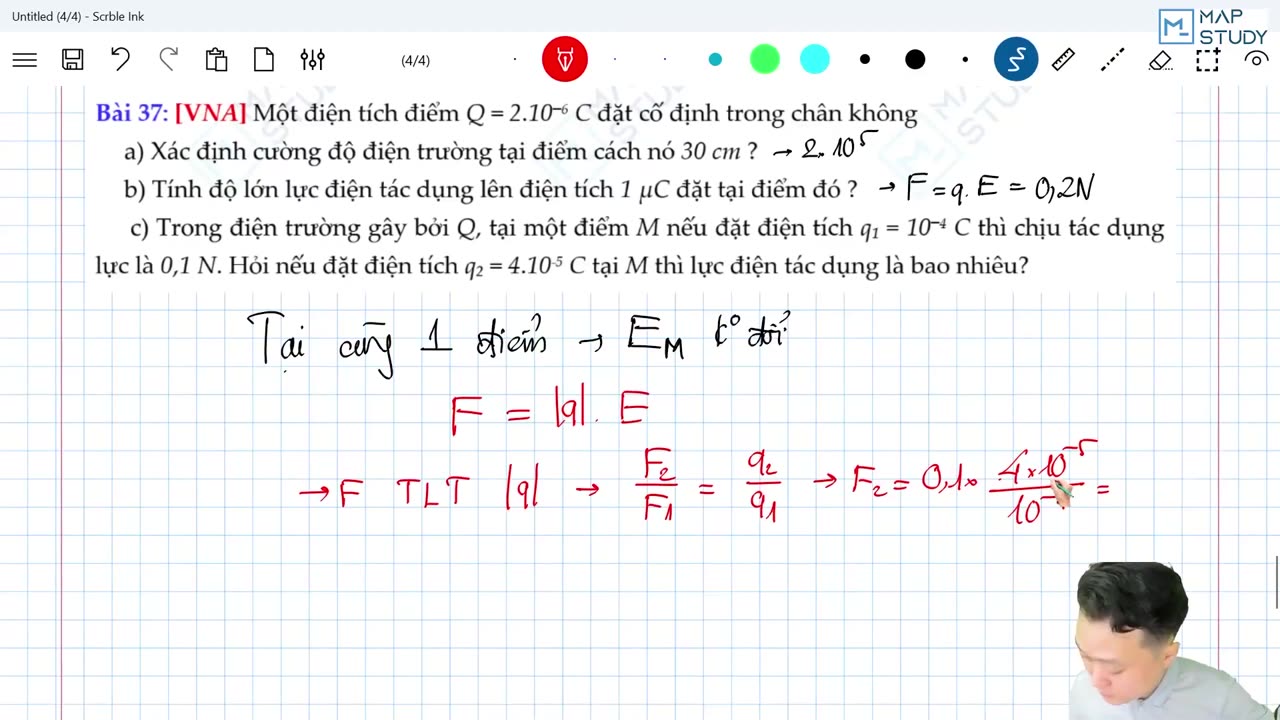 Untitled (4/4) - Scrble Ink
MAP
STUDY
(4/4)
Bài 37: [VNA] Một điện tích điểm Q = 2.10⁻⁶ C đặt cố định trong chân không
a) Xác định cường độ điện trường tại điểm cách nó 30 cm ? → 2.10⁵
b) Tính độ lớn lực điện tác dụng lên điện tích 1 μC đặt tại điểm đó ? → F = q. E = 0,2N
c) Trong điện trường gây bởi Q, tại một điểm M nếu đặt điện tích q₁ = 10⁻⁴ C thì chịu tác dụng
lực là 0,1 N. Hỏi nếu đặt điện tích q₂ = 4.10⁻⁵ C tại M thì lực điện tác dụng là bao nhiêu?
Tại cùng 1 điểm → E_M k° đổi
F = |q|. E
→ F TLT |q| → F₂/F₁ = q₂/q₁ → F₂ = 0,1× 4×10⁻⁵/10⁻ =